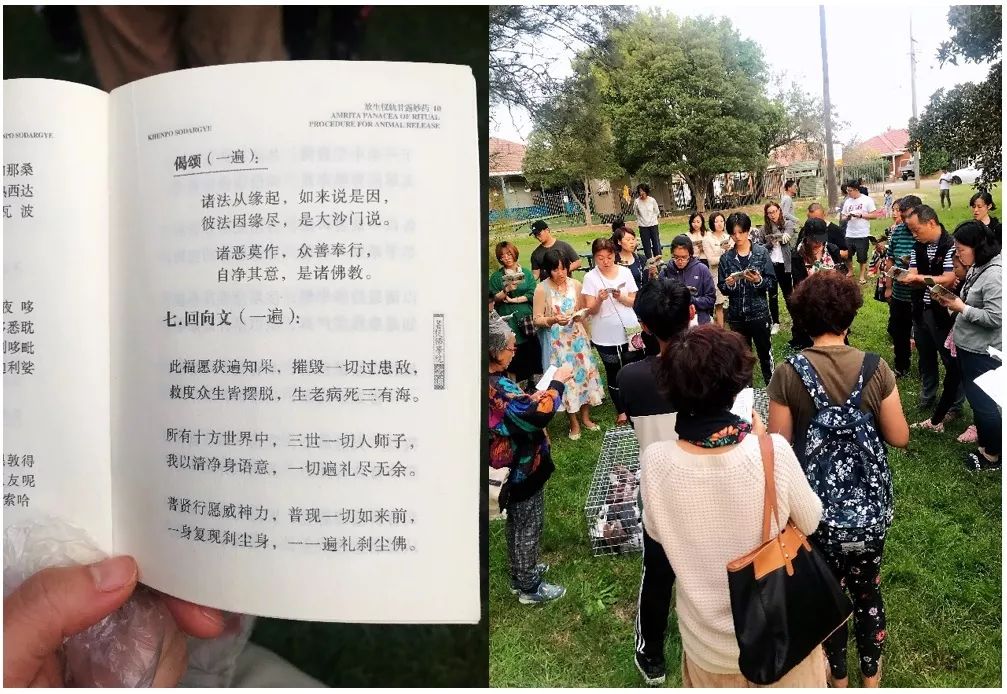 NPO SODARGYE
那桑
西达
瓦 波
夜 哆
悉耽
哆毗
利娑
敦得
友呢
索哈
KHENPO SODARGYE
放生仪轨甘露妙药 10
AMRITA PANACEA OF RITUAL
PROCEDURE FOR ANIMAL RELEASE
偈颂(一遍):
诸法从缘起,如来说是因,
彼法因缘尽,是大沙门说。
诸恶莫作,众善奉行,
自净其意,是诸佛教。
七.回向文(一遍):
此福愿获遍知果,摧毁一切过患敌,
救度众生皆摆脱,生老病死三有海。
所有十方世界中,三世一切人师子,
我以清净身语意,一切遍礼尽无余。
普贤行愿威神力,普现一切如来前,
一身复现刹尘身,一一遍礼刹尘佛。